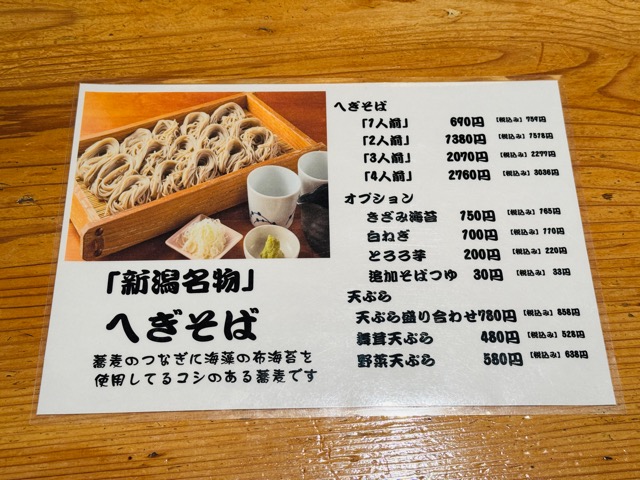 へぎそば
「1人前」 690円 【税込み】 759円
「2人前」 1380円 【税込み】 1518円
「3人前」 2070円 【税込み】 2277円
「4人前」 2760円 【税込み】 3036円
オプション
きざみ海苔 150円 【税込み】 165円
白ねぎ 100円 【税込み】 110円
とろろ芋 200円 【税込み】 220円
追加そばつゆ 30円 【税込み】 33円
天ぷら
天ぷら盛り合わせ 780円 【税込み】 858円
舞茸天ぷら 480円 【税込み】 528円
野菜天ぷら 580円 【税込み】 638円
「新潟名物」
へぎそば
蕎麦のつなぎに海藻の布海苔を
使用してるコシのある蕎麦です